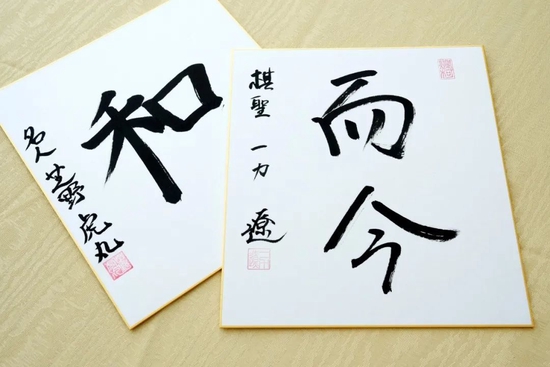 和
名人 芝野 虎丸
而今
棋聖 一力 遼